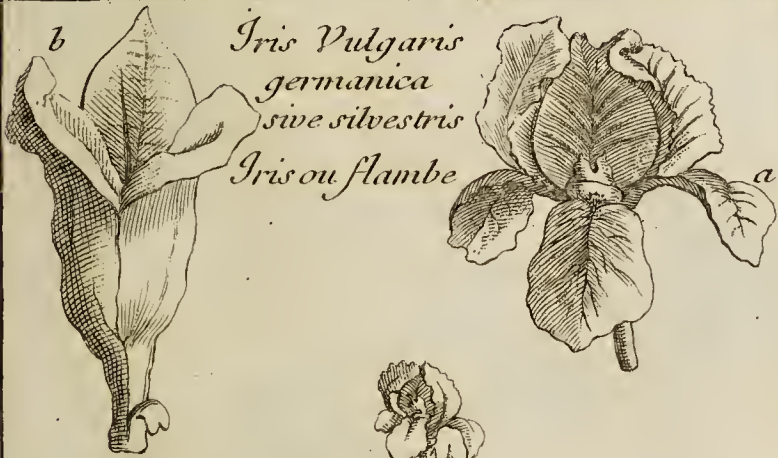 b
Iris Vulgaris
germanica
sive silvestris
Iris ou flambe
a